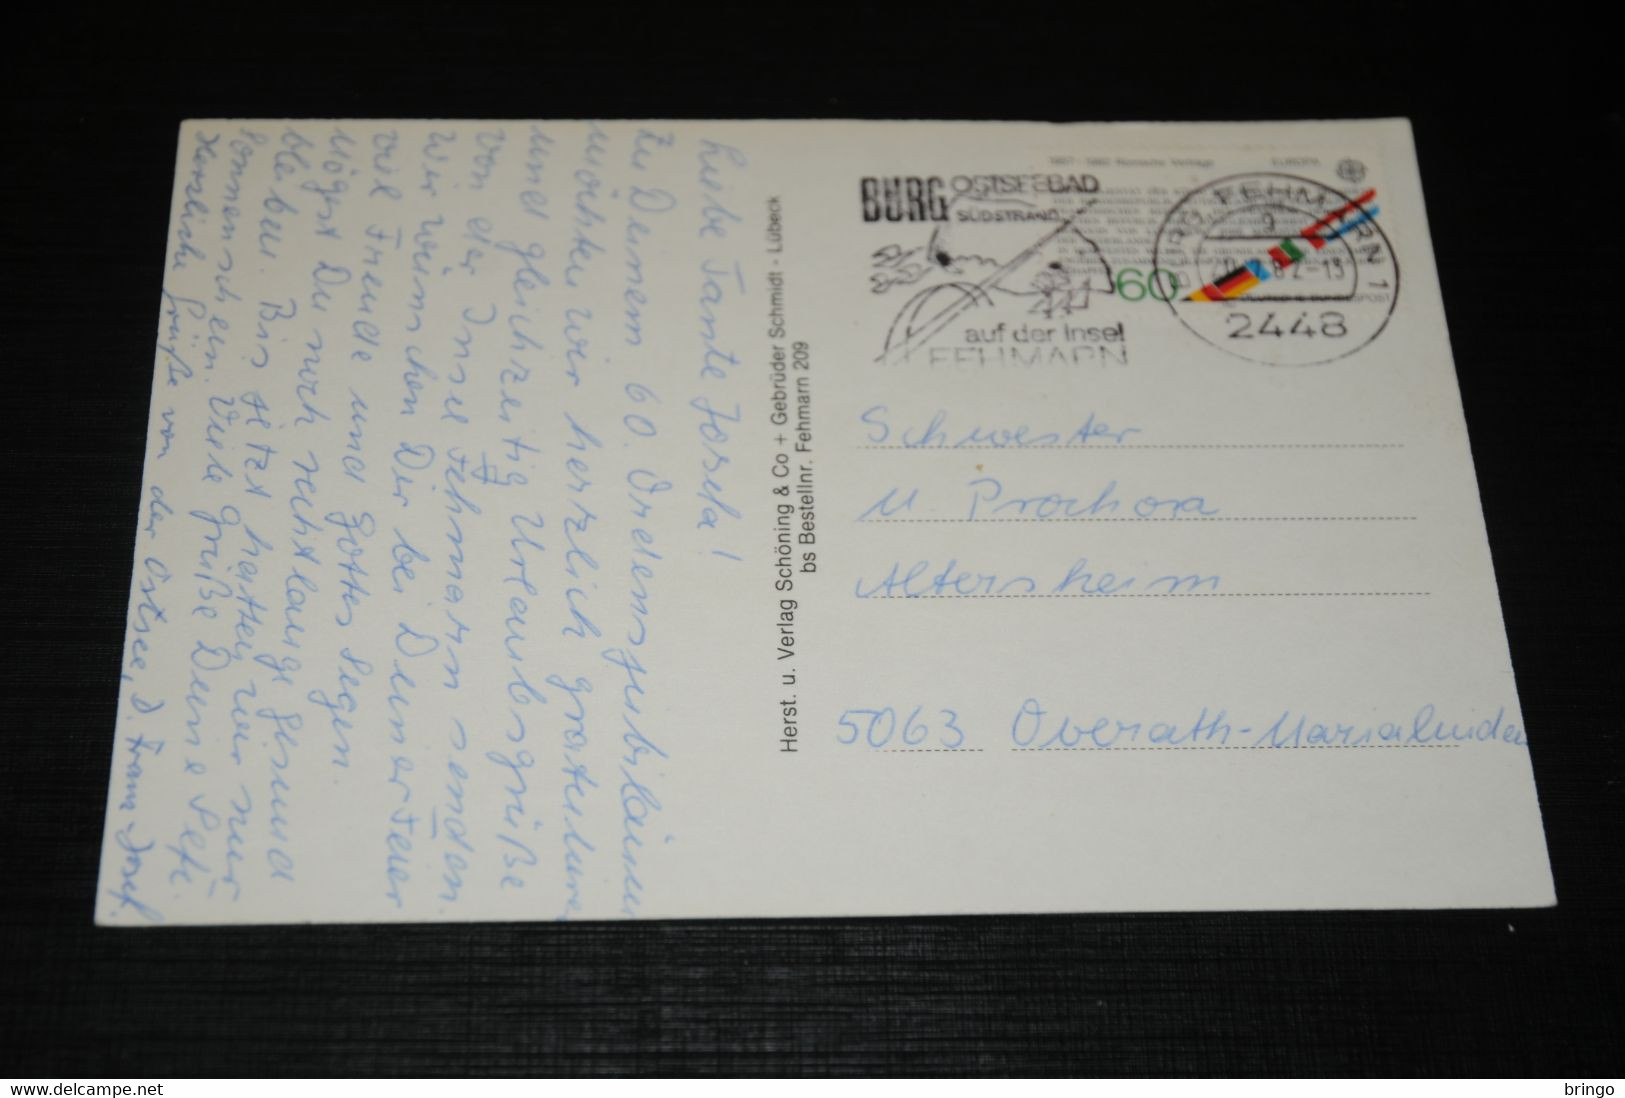 Liebe Tante Josefa!
Zu Deinem 60. Ordensjubiläum
möchten wir herzlich gratulieren
und gleichzeitig Urlaubsgrüße
von der Insel Fehmarn senden.
Wir wünschen Dir bei Deiner Feier
viel Freude und Gottes Segen.
Mögest Du noch recht lange gesund
bleiben. Bis jetzt hatten wir nur
Sonnenschein. Viele Grüße Deine
Herzliche Grüße von der Ostsee, D. Franz Josef.
Herst. u. Verlag Schöning & Co + Gebrüder Schmidt - Lübeck
bs Bestellnr. Fehmarn 209
BURG OSTSEEBAD
SÜDSTRAND
auf der Insel
FEHMARN
1957-1982 Römische Verträge EUROPA
60
DEUTSCHE BUNDESPOST
FEHMARN 1
2448
Schwester
M. Prochora
Altersheim
5063 Overath-Marialinden
delcampe.net
bringo